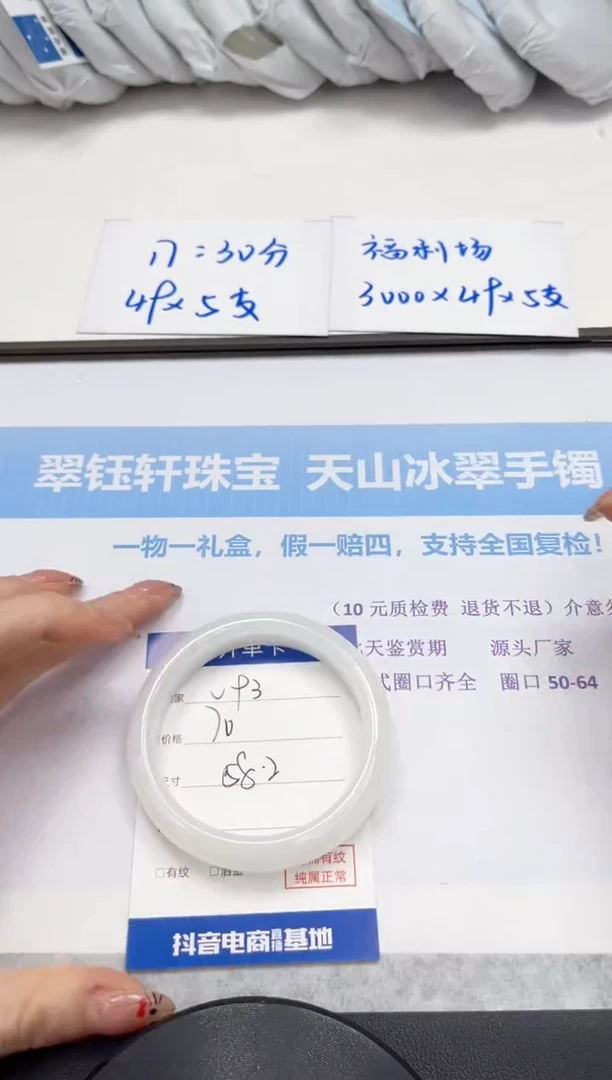 17:30分
4件x5支
福利场
3000x4件x5支
翠钰轩珠宝 天山冰翠手镯
一物一礼盒，假一赔四，支持全国复检!
（10元质检费 退货不退）介意
天鉴赏期 源头厂家
式圈口齐全 圈口 50-64
家
价格 70
寸 58.2
□有纹 □洒
有纹
纯属正常
抖音电商直播基地